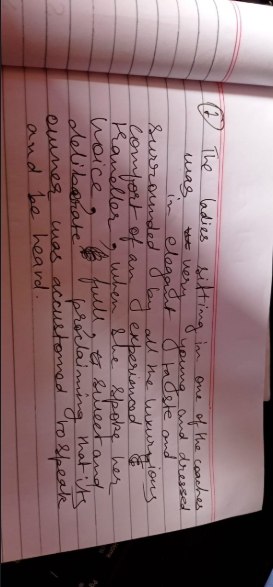 (1) The ladies sitting in one of the coaches
was very young and dressed
in elegant taste and
surrounded by all the luxurious
comfort of an experienced
traveller, when she spoke her
voice, full, sweet and
deliberate proclaiming that its
owner was accustomed to speak
and be heard.